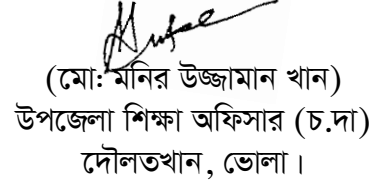 (মো: মনির উজ্জামান খান)
উপজেলা শিক্ষা অফিসার (চ.দা)
দৌলতখান, ভোলা।